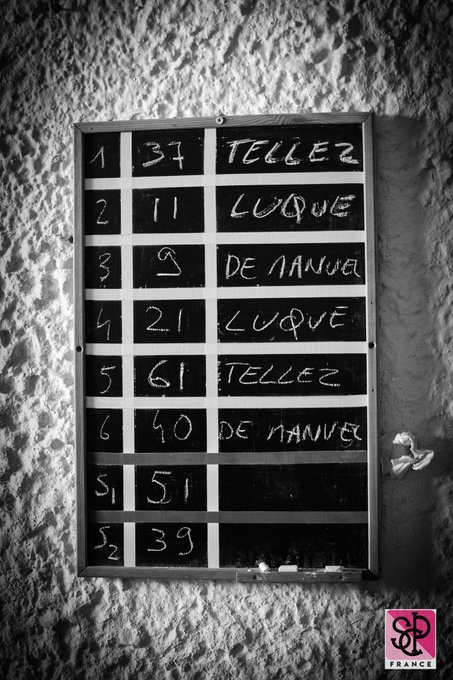 1 37 TELLEZ
2 11 LUQUE
3 9 DE MANUEL
4 21 LUQUE
5 61 TELLEZ
6 40 DE MANUEL
S1 51
S2 39
SCP
FRANCE